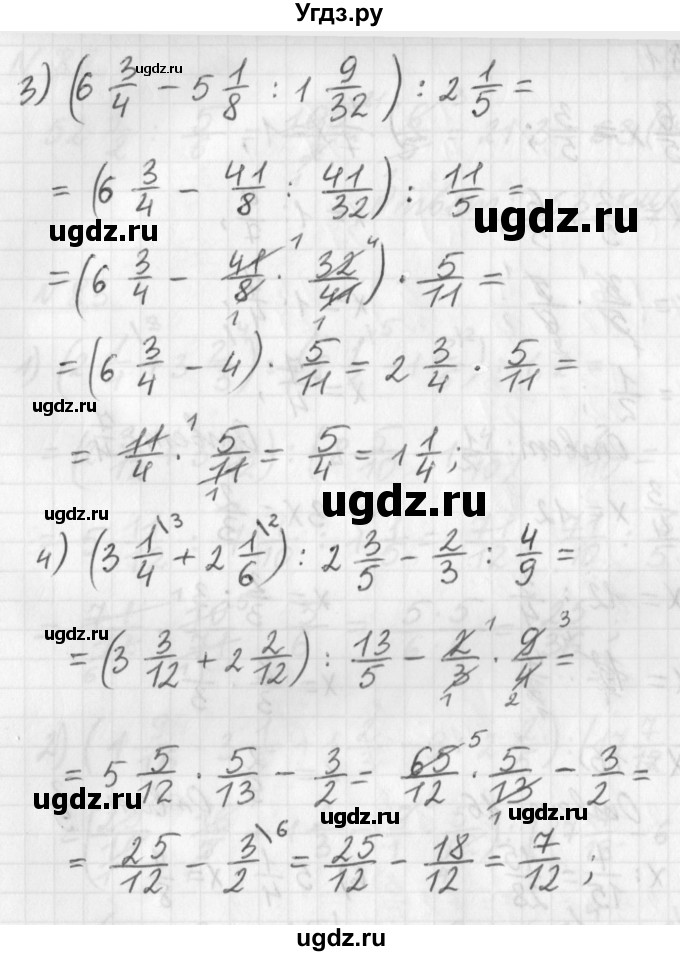 Угдз.ру
ugdz.ru
3) (6 3/4 − 5 1/8 : 1 9/32) : 2 1/5 =
= (6 3/4 − 41/8 : 41/32) : 11/5 =
ugdz.ru
ugdz.ru
= (6 3/4 − 41/8 1 · 32/41 4) · 5/11 =
1 1
= (6 3/4 − 4) · 5/11 = 2 3/4 · 5/11 =
ugdz.ru
= 11/4 1 · 5/11 1 = 5/4 = 1 1/4;
ugdz.ru
ugdz.ru
4) (3 1/4 \3 + 2 1/6 \2) : 2 3/5 − 2/3 : 4/9 =
ugdz.ru
= (3 3/12 + 2 2/12) : 13/5 − 2/3 1 · 9/4 3 =
1 2
= 5 5/12 · 5/13 − 3/2 = 65/12 5 · 5/13 1 − 3/2 =
ugdz.ru
ugdz.ru
= 25/12 − 3/2 \6 = 25/12 − 18/12 = 7/12;
ugdz.ru
ugdz.ru